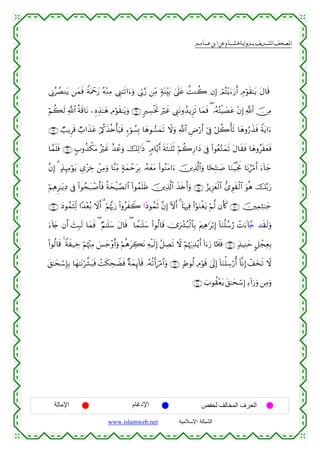 المصحف الشريف برواية هشام عن ابن عامر
قَالَ يَٰقَوْمِ أَرَءَيْتُمْ إِن كُنتُ عَلَىٰ بَيِّنَةٍ مِّن رَّبِّى وَءَاتَىٰنِى مِنْهُ رَحْمَةً فَمَن يَنصُرُنِى
مِنَ ٱللَّهِ إِنْ عَصَيْتُهُۥ ۖ فَمَا تَزِيدُونَنِى غَيْرَ تَخْسِيرٍ ۝ وَيَٰقَوْمِ هَٰذِهِۦ نَاقَةُ ٱللَّهِ لَكُمْ
ءَايَةً فَذَرُوهَا تَأْكُلْ فِىٓ أَرْضِ ٱللَّهِ وَلَا تَمَسُّوهَا بِسُوٓءٍ فَيَأْخُذَكُمْ عَذَابٌ قَرِيبٌ ۝
فَعَقَرُوهَا فَقَالَ تَمَتَّعُوا۟ فِى دَارِكُمْ ثَلَٰثَةَ أَيَّامٍ ۖ ذَٰلِكَ وَعْدٌ غَيْرُ مَكْذُوبٍ ۝ فَلَمَّا
جَآءَ أَمْرُنَا نَجَّيْنَا صَٰلِحًا وَٱلَّذِينَ ءَامَنُوا۟ مَعَهُۥ بِرَحْمَةٍ مِّنَّا وَمِنْ خِزْىِ يَوْمِئِذٍ ۗ إِنَّ
رَبَّكَ هُوَ ٱلْقَوِىُّ ٱلْعَزِيزُ ۝ وَأَخَذَ ٱلَّذِينَ ظَلَمُوا۟ ٱلصَّيْحَةُ فَأَصْبَحُوا۟ فِى دِيَٰرِهِمْ
جَٰثِمِينَ ۝ كَأَن لَّمْ يَغْنَوْا۟ فِيهَآ ۗ أَلَآ إِنَّ ثَمُودًا كَفَرُوا۟ رَبَّهُمْ ۗ أَلَا بُعْدًا لِّثَمُودَ ۝
وَلَقَدْ جَآءَتْ رُسُلُنَآ إِبْرَٰهِيمَ بِٱلْبُشْرَىٰ قَالُوا۟ سَلَٰمًا ۖ قَالَ سَلَٰمٌ ۖ فَمَا لَبِثَ أَن جَآءَ
بِعِجْلٍ حَنِيذٍ ۝ فَلَمَّا رَءَآ أَيْدِيَهُمْ لَا تَصِلُ إِلَيْهِ نَكِرَهُمْ وَأَوْجَسَ مِنْهُمْ خِيفَةً ۚ قَالُوا۟
لَا تَخَفْ إِنَّآ أُرْسِلْنَآ إِلَىٰ قَوْمِ لُوطٍ ۝ وَٱمْرَأَتُهُۥ قَآئِمَةٌ فَضَحِكَتْ فَبَشَّرْنَٰهَا بِإِسْحَٰقَ
وَمِن وَرَآءِ إِسْحَٰقَ يَعْقُوبَ ۝
الحرف المخالف لحفص الإدغام الإمالة
الشبكة الإسلامية www.islamweb.net